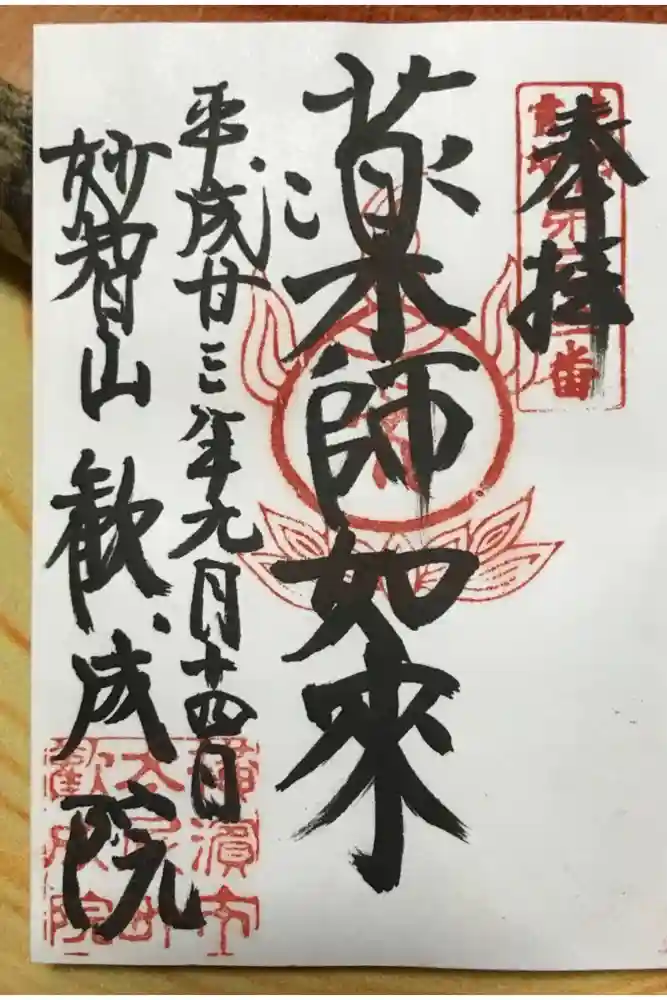 奉拝
薬師如来
平成廿三年九月十四日
妙智山 歓成院
横濱市
大尾町
歓成院